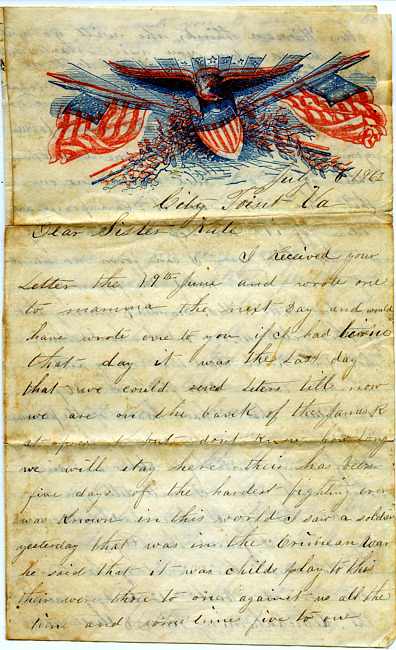 July 1862
City Point Va
Dear Sister Kate
I Received your
Letter the 19th June and wrote one
to mamma the next day and would
have wrote one to you if I had time
that day it was the last day
that we could send leters till now
we are on the bank of the James R
at present but dont know how long
we will stay here their has been
five days of the hardest fighting ever
was Known in this world I saw a soldier
yesterday that was in the Crimean War
he said that it was childs play to this
their were three to one against us all the
time and some times five to one